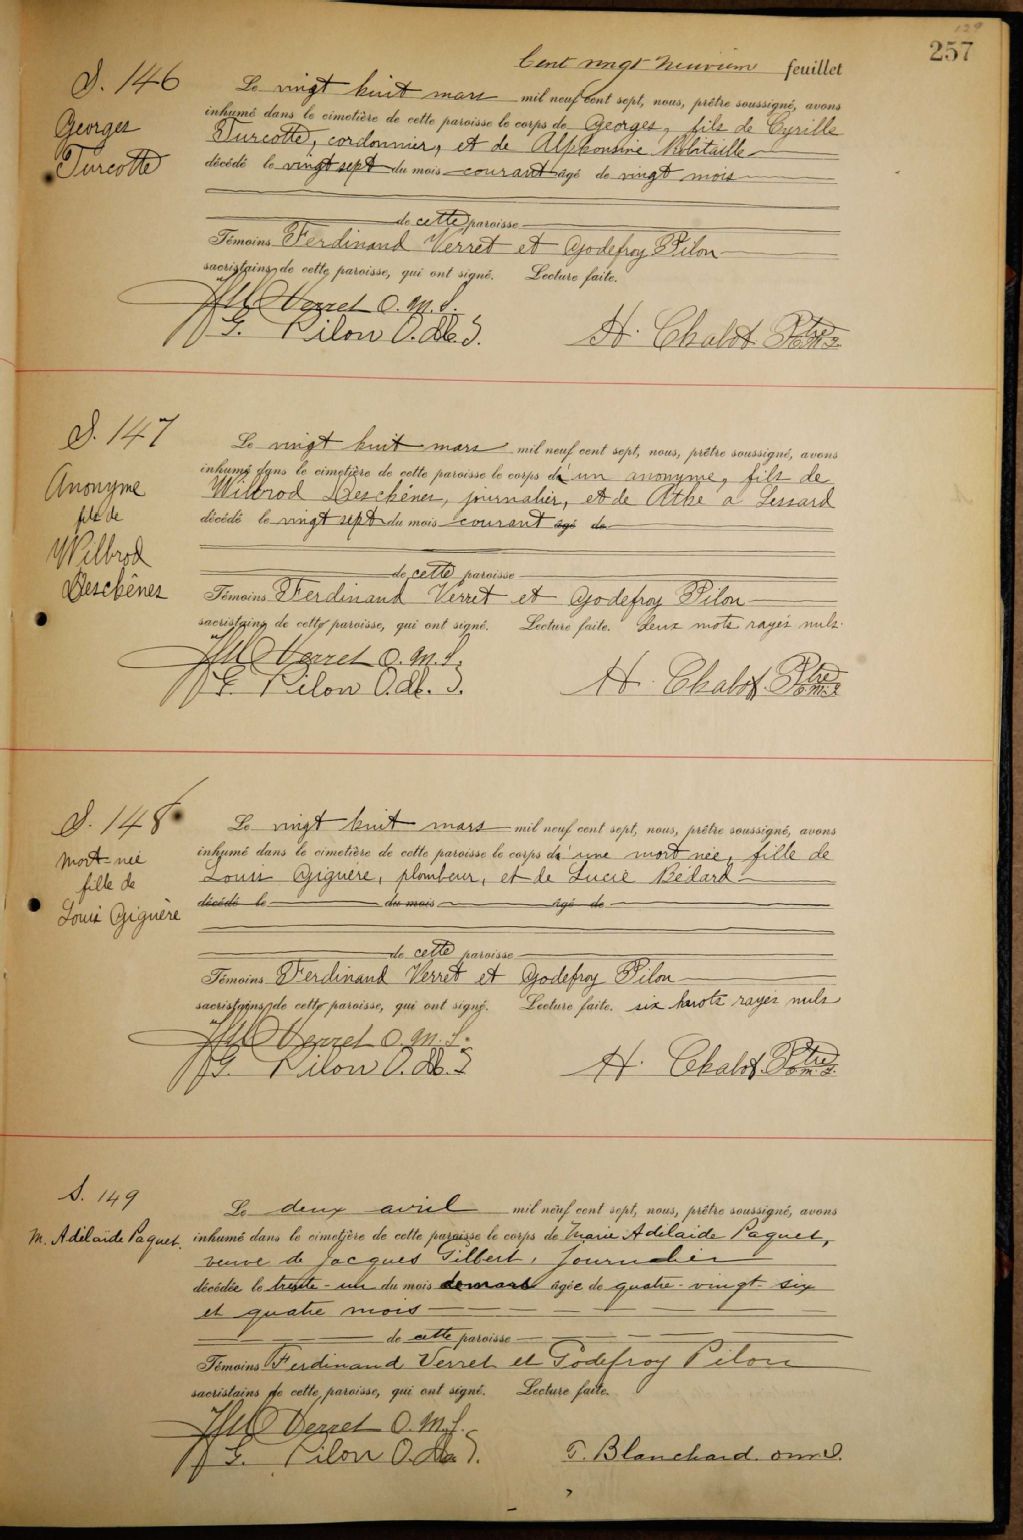 129
257
Cent vingt neuvième feuillet
S. 146
Georges
Turcotte
Le vingt huit mars mil neuf cent sept, nous, prêtre soussigné, avons
inhumé dans le cimetière de cette paroisse le corps de Georges, fils de Cyrille
Turcotte, cordonnier, et de Alphonsine Robitaille
décédé le vingt sept du mois courant âgé de vingt mois
de cette paroisse
Témoins Ferdinand Verret et Godefroy Pilon
sacristains de cette paroisse, qui ont signé. Lecture faite.
Verret O.M.I.
G. Pilon O.M.I. H. Chabot Ptre O.M.I.
S. 147
Anonyme
fils de
Wilbrod
Deschênes
Le vingt huit mars mil neuf cent sept, nous, prêtre soussigné, avons
inhumé dans le cimetière de cette paroisse le corps d'un anonyme, fils de
Wilbrod Deschênes, journalier, et de Athea Lessard
décédé le vingt sept du mois courant âgé de
de cette paroisse
Témoins Ferdinand Verret et Godefroy Pilon
sacristains de cette paroisse, qui ont signé. Lecture faite. deux mots rayés nuls.
Verret O.M.I.
G. Pilon O.M.I. H. Chabot Ptre O.M.I.
S. 148
Mort-née
fille de
Louis Giguère
Le vingt huit mars mil neuf cent sept, nous, prêtre soussigné, avons
inhumé dans le cimetière de cette paroisse le corps d'une mort née, fille de
Louis Giguère, plombeur, et de Lucie Bédard
décédé le du mois âgé de
de cette paroisse
Témoins Ferdinand Verret et Godefroy Pilon
sacristains de cette paroisse, qui ont signé. Lecture faite. six mots rayés nuls
Verret O.M.I.
G. Pilon O.M.I. H. Chabot Ptre O.M.I.
S. 149
M. Adélaïde Paquet.
Le deux avril mil neuf cent sept, nous, prêtre soussigné, avons
inhumé dans le cimetière de cette paroisse le corps de Marie Adélaide Paquet,
veuve de Jacques Gilbert, journalier
décédée le trente-un du mois de mars âgée de quatre-vingt-six
et quatre mois
de cette paroisse
Témoins Ferdinand Verret et Godefroy Pilon
sacristains de cette paroisse, qui ont signé. Lecture faite.
Verret O.M.I.
G. Pilon O.M.I. T. Blanchard. o.m.I.